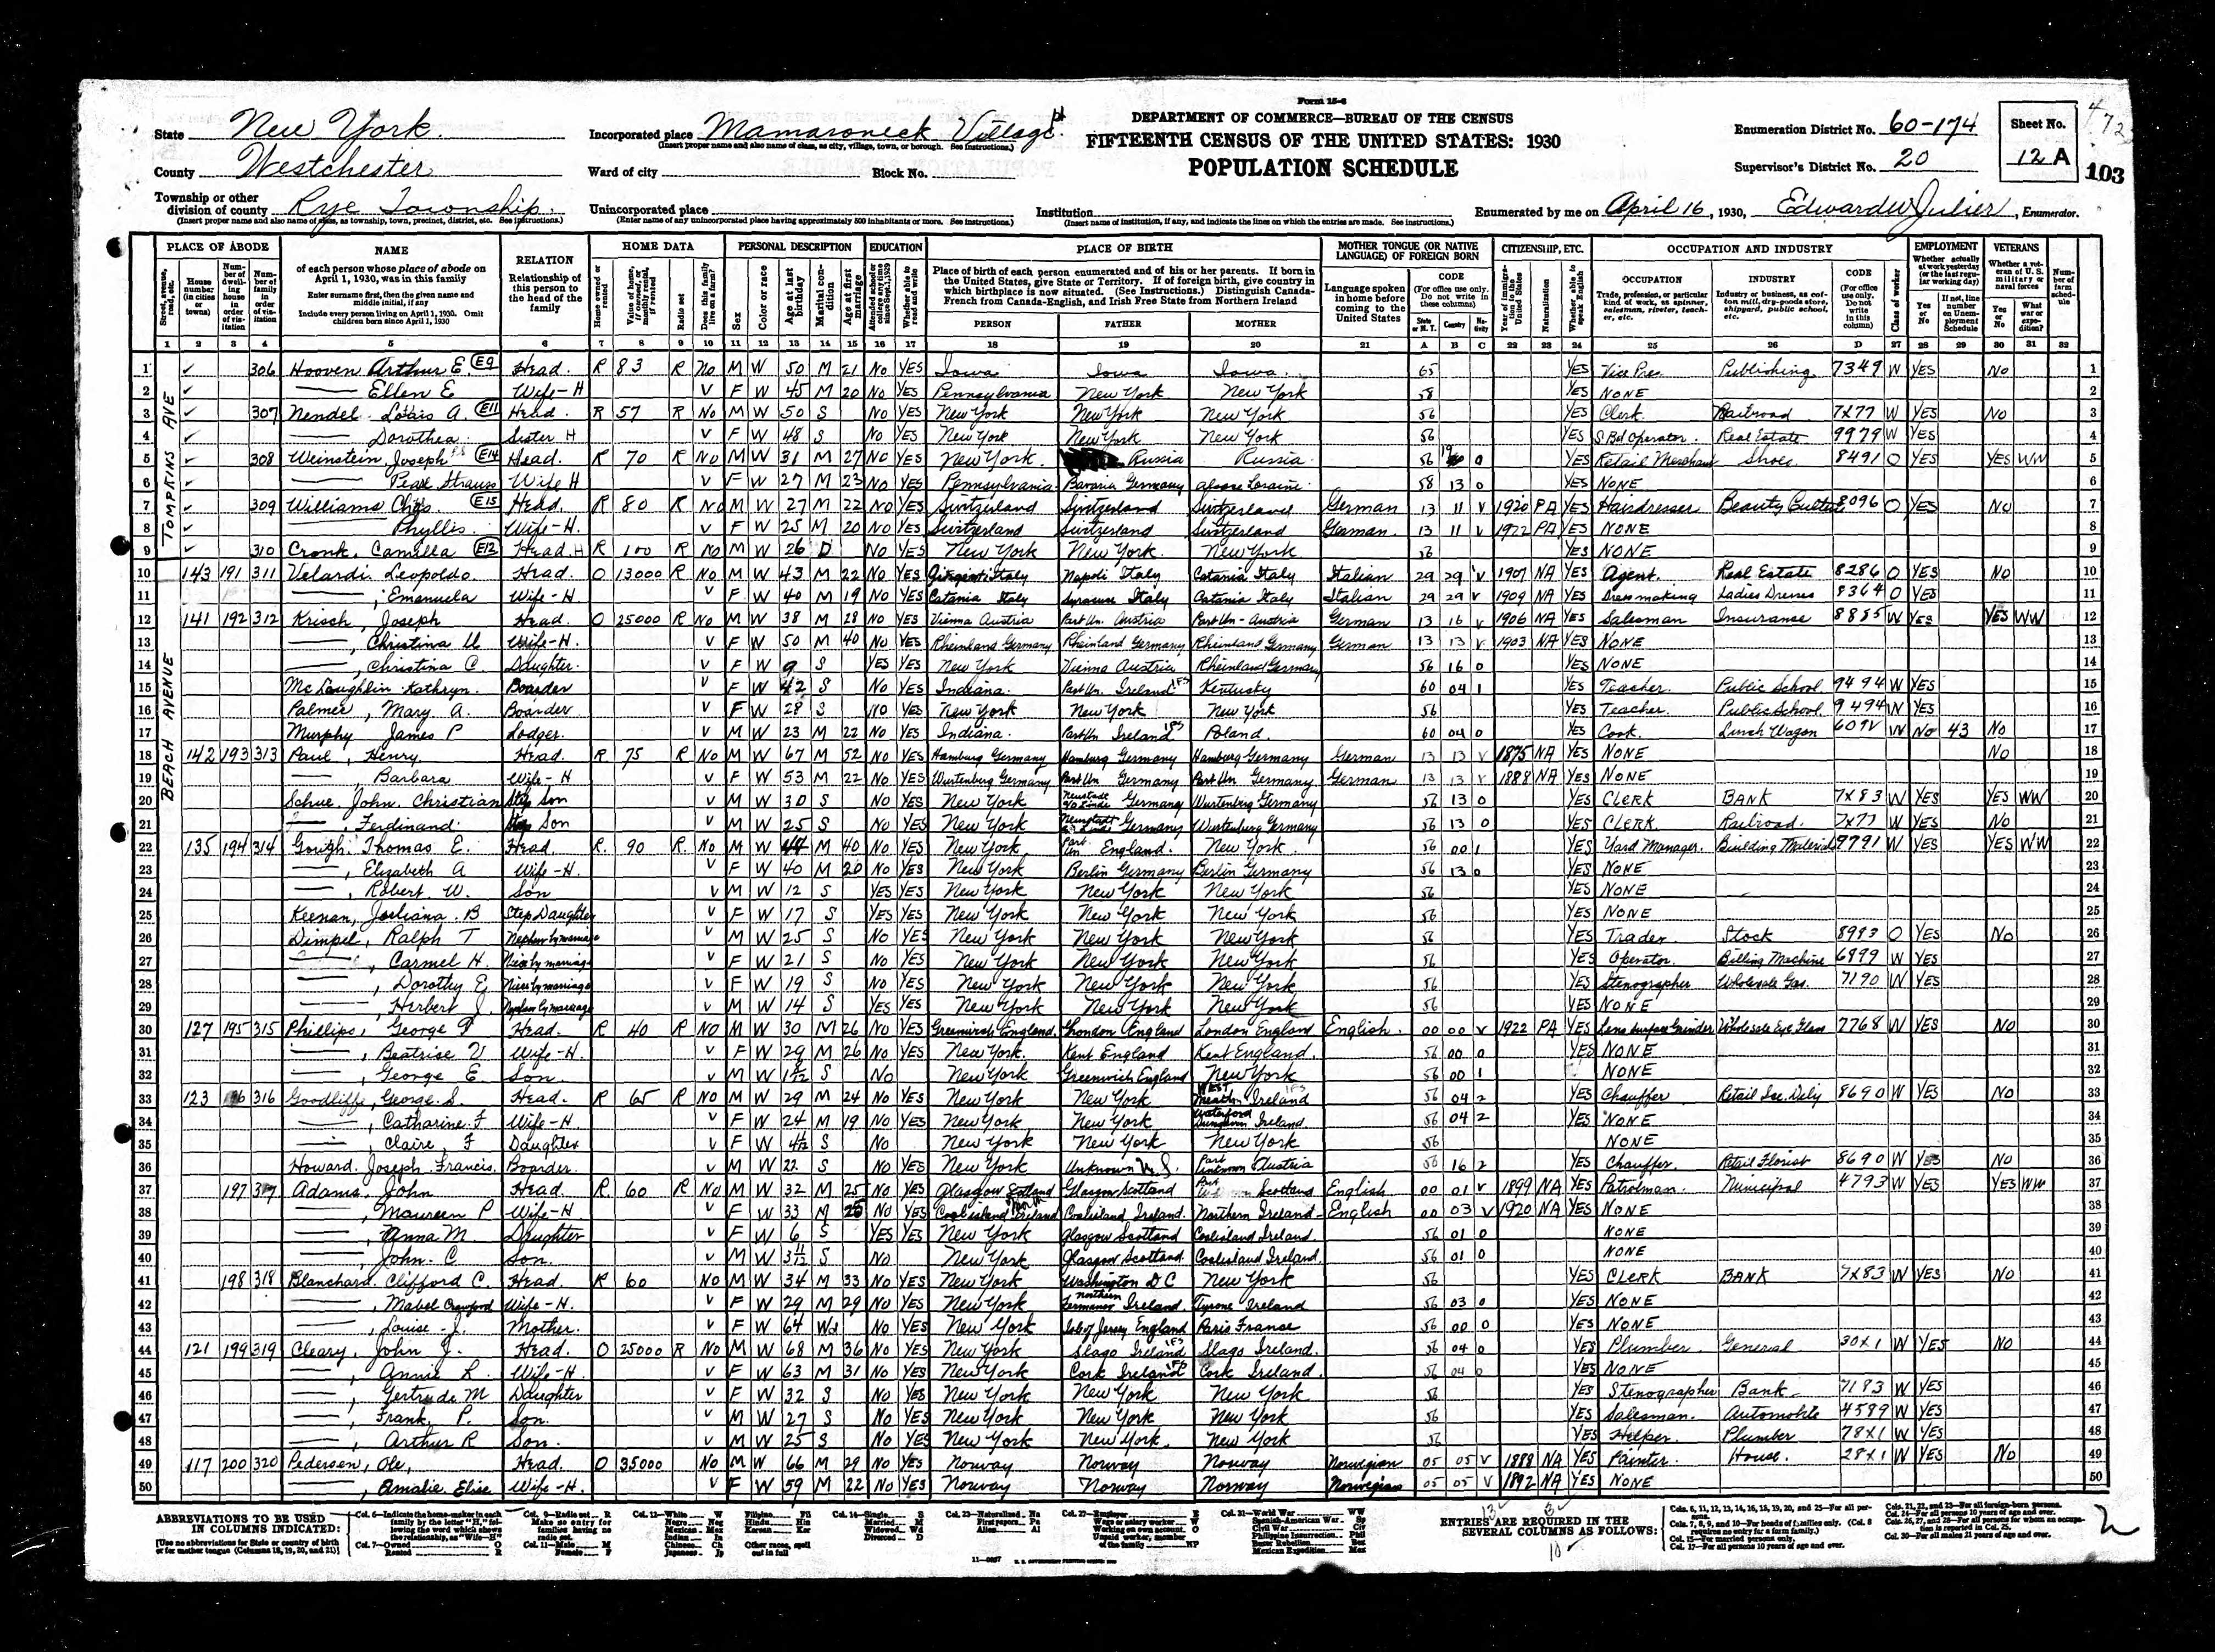 Form 15-6
State New York
Incorporated place Mamaroneck Village
(Insert proper name and also name of class, as city, village, town, or borough. See instructions.)
DEPARTMENT OF COMMERCE—BUREAU OF THE CENSUS
FIFTEENTH CENSUS OF THE UNITED STATES: 1930
POPULATION SCHEDULE
Enumeration District No. 60-174
Sheet No.
12 A
103
County Westchester
Ward of city Block No.
Supervisor's District No. 20
Township or other division of county Rye Township
(Insert proper name and also name of class, as township, town, precinct, district, etc. See instructions.)
Unincorporated place
(Enter name of any unincorporated place having approximately 500 inhabitants or more. See instructions.)
Institution
(Insert name of institution, if any, and indicate the lines on which the entries are made. See instructions.)
Enumerated by me on April 16, 1930, Edward W Julier, Enumerator.
PLACE OF ABODE NAME RELATION HOME DATA PERSONAL DESCRIPTION EDUCATION PLACE OF BIRTH MOTHER TONGUE (OR NATIVE LANGUAGE) OF FOREIGN BORN CITIZENSHIP, ETC. OCCUPATION AND INDUSTRY EMPLOYMENT VETERANS
TOMPKINS AVE
1 306 Hooven Arthur E. E9 Head R 83 R No M W 50 M 21 No YES Iowa Iowa Iowa 65 YES Vice Pres. Publishing 7349 W YES No 1
2 Ellen E Wife-H V F W 45 M 20 No YES Pennsylvania New York New York 58 YES NONE 2
3 307 Nendel Louis A. E11 Head R 57 R No M W 50 S No YES New York New York New York 56 YES Clerk Railroad 7X77 W YES No 3
4 Dorothea Sister H V F W 48 S No YES New York New York New York 56 YES S. Bd Operator Real Estate 9979 W YES 4
5 308 Weinstein Joseph E14 Head R 70 R No M W 31 M 27 No YES New York Russia Russia 56 19 0 YES Retail Merchant Shoes 8491 O YES YES WW 5
6 Pearl Strauss Wife H V F W 27 M 23 No YES Pennsylvania Bavaria Germany Alsace Loraine 58 13 0 YES NONE 6
7 309 Williams Chas. E15 Head R 80 R No M W 27 M 22 No YES Switzerland Switzerland Switzerland German 13 11 V 1920 PA YES Hairdresser Beauty Culture 8096 O YES No 7
8 Phyllis Wife-H. V F W 25 M 20 No YES Switzerland Switzerland Switzerland German 13 11 V 1922 PA YES NONE 8
9 310 Cronk, Camilla E12 Head H R 100 R No M W 26 D No YES New York New York New York 56 YES NONE 9
BEACH AVENUE
10 143 191 311 Velardi Leopoldo Head O 13000 R No M W 43 M 22 No YES Girgenti Italy Napoli Italy Catania Italy Italian 29 29 V 1907 NA YES Agent Real Estate 8286 O YES No 10
11 Emanuela Wife-H V F W 40 M 19 No YES Catania Italy Syracuse Italy Catania Italy Italian 29 29 V 1909 NA YES Dressmaking Ladies Dresses 8364 O YES 11
12 141 192 312 Krisch, Joseph Head O 25000 R No M W 38 M 28 No YES Vienna Austria Part Un. Austria Part Un- Austria German 13 16 V 1906 NA YES Salesman Insurance 8885 W YES YES WW 12
13 Christina U Wife-H. V F W 50 M 40 No YES Rheinland Germany Rheinland Germany Rheinland Germany German 13 13 V 1903 NA YES NONE 13
14 Christina C. Daughter V F W 9 S YES YES New York Vienna Austria Rheinland Germany 56 16 0 YES NONE 14
15 McLaughlin Kathryn Boarder V F W 42 S No YES Indiana Part Un. Ireland IFS Kentucky 60 04 1 YES Teacher Public School 9494 W YES 15
16 Palmer, Mary A. Boarder V F W 28 S No YES New York New York New York 56 YES Teacher Public School 9494 W YES 16
17 Murphy James P Lodger V M W 23 M 22 No YES Indiana Part Un Ireland IFS Poland 60 04 0 YES Cook Lunch Wagon 609V W No 43 No 17
18 142 193 313 Paul, Henry Head R 75 R No M W 67 M 52 No YES Hamburg Germany Hamburg Germany Hamburg Germany German 13 13 V 1875 NA YES NONE No 18
19 Barbara Wife-H V F W 53 M 22 No YES Wurtenberg Germany Part Un Germany Part Un Germany German 13 13 V 1888 NA YES NONE 19
20 Schue John Christian Step Son V M W 30 S No YES New York Germany Wurtenberg Germany 56 13 0 YES CLERK BANK 7X83 W YES YES WW 20
21 Ferdinand Step Son V M W 25 S No YES New York Germany Wurtenberg Germany 56 13 0 YES CLERK Railroad 7X77 W YES No 21
22 135 194 314 Gough Thomas E. Head R 90 R No M W 44 M 40 No YES New York Part Un England New York 56 00 1 YES Yard Manager Building Material 9791 W YES YES WW 22
23 Elizabeth A Wife-H. V F W 40 M 20 No YES New York Berlin Germany Berlin Germany 56 13 0 YES NONE 23
24 Robert W. Son V M W 12 S YES YES New York New York New York 56 YES NONE 24
25 Keenan, Juliana B Step Daughter V F W 17 S YES YES New York New York New York 56 YES NONE 25
26 Dimpel, Ralph T Nephew by marriage V M W 25 S No YES New York New York New York 56 YES Trader Stock 8983 O YES No 26
27 Carmel H. Niece by marriage V F W 21 S No YES New York New York New York 56 YES Operator Billing Machine 6899 W YES 27
28 Dorothy E Niece by marriage V F W 19 S No YES New York New York New York 56 YES Stenographer Wholesale Gro. 7190 W YES 28
29 Herbert J. Nephew by marriage V M W 14 S YES YES New York New York New York 56 YES NONE 29
30 127 195 315 Phillips, George Head R 40 R No M W 30 M 26 No YES Greenwich England London England London England English 00 00 V 1922 PA YES Lens Surface Grinder Wholesale Eye Glass 7768 W YES No 30
31 Beatrice V Wife-H. V F W 29 M 26 No YES New York Kent England Kent England 56 00 0 YES NONE 31
32 George E. Son V M W S No New York Greenwich England New York 56 00 1 NONE 32
33 123 196 316 Goodliffe, George S. Head R 65 R No M W 29 M 24 No YES New York New York West Meath Ireland IFS 56 04 2 YES Chauffer Retail Ice Dely 8690 W YES No 33
34 Catharine F Wife-H V F W 24 M 19 No YES New York New York Waterford Ireland 56 04 2 YES NONE 34
35 Claire F Daughter V F W S No New York New York New York 56 NONE 35
36 Howard Joseph Francis Boarder V M W 22 S No YES New York Unknown U.S. Part Unknown Austria 56 16 2 YES Chauffer Retail Florist 8690 W YES No 36
37 197 317 Adams John Head R 60 R No M W 32 M 25 No YES Glasgow Scotland Glasgow Scotland Scotland English 00 01 V 1899 NA YES Patrolman Municipal 4793 W YES YES WW 37
38 Maureen P Wife-H V F W 33 M 25 No YES Coalisland North Ireland Coalisland Ireland Northern Ireland English 00 03 V 1920 NA YES NONE 38
39 Anna M. Daughter V F W 6 S YES YES New York Glasgow Scotland Coalisland Ireland 56 01 0 NONE 39
40 John C Son V M W 3 11/12 S No New York Glasgow Scotland Coalisland Ireland 56 01 0 NONE 40
41 198 318 Blanchard Clifford C. Head R 60 No M W 34 M 33 No YES New York Washington D C New York 56 YES CLERK BANK 7X83 W YES No 41
42 Mabel Crawford Wife-H. V F W 29 M 29 No YES New York Northern Fermanor Ireland Tyrone Ireland 56 03 0 YES NONE 42
43 Louise J. Mother V F W 64 Wd No YES New York Isle of Jersey England Paris France 56 00 0 YES NONE 43
44 121 199 319 Cleary, John J. Head O 25000 R No M W 68 M 36 No YES New York Slago Ireland IFS Slago Ireland 56 04 0 YES Plumber General 30X1 W YES No 44
45 Annie L. Wife-H. V F W 63 M 31 No YES New York Cork Ireland IFS Cork Ireland 56 04 0 YES NONE 45
46 Gertrude M Daughter V F W 32 S No YES New York New York New York 56 YES Stenographer Bank 7183 W YES 46
47 Frank P. Son V M W 27 S No YES New York New York New York 56 YES Salesman Automobile 4589 W YES 47
48 Arthur R Son V M W 25 S No YES New York New York New York 56 YES Helper Plumber 78X1 W YES 48
49 117 200 320 Pedersen, Ole Head O 35000 No M W 66 M 29 No YES Norway Norway Norway Norwegian 05 05 V 1888 NA YES Painter House 28X1 W YES No 49
50 Amalie Elise Wife-H. V F W 59 M 22 No YES Norway Norway Norway Norwegian 05 05 V 1892 NA YES NONE 50
ABBREVIATIONS TO BE USED IN COLUMNS INDICATED:
[Use no abbreviations for State or country of birth or for mother tongue (Columns 18, 19, 20, and 21)]
ENTRIES ARE REQUIRED IN THE SEVERAL COLUMNS AS FOLLOWS: